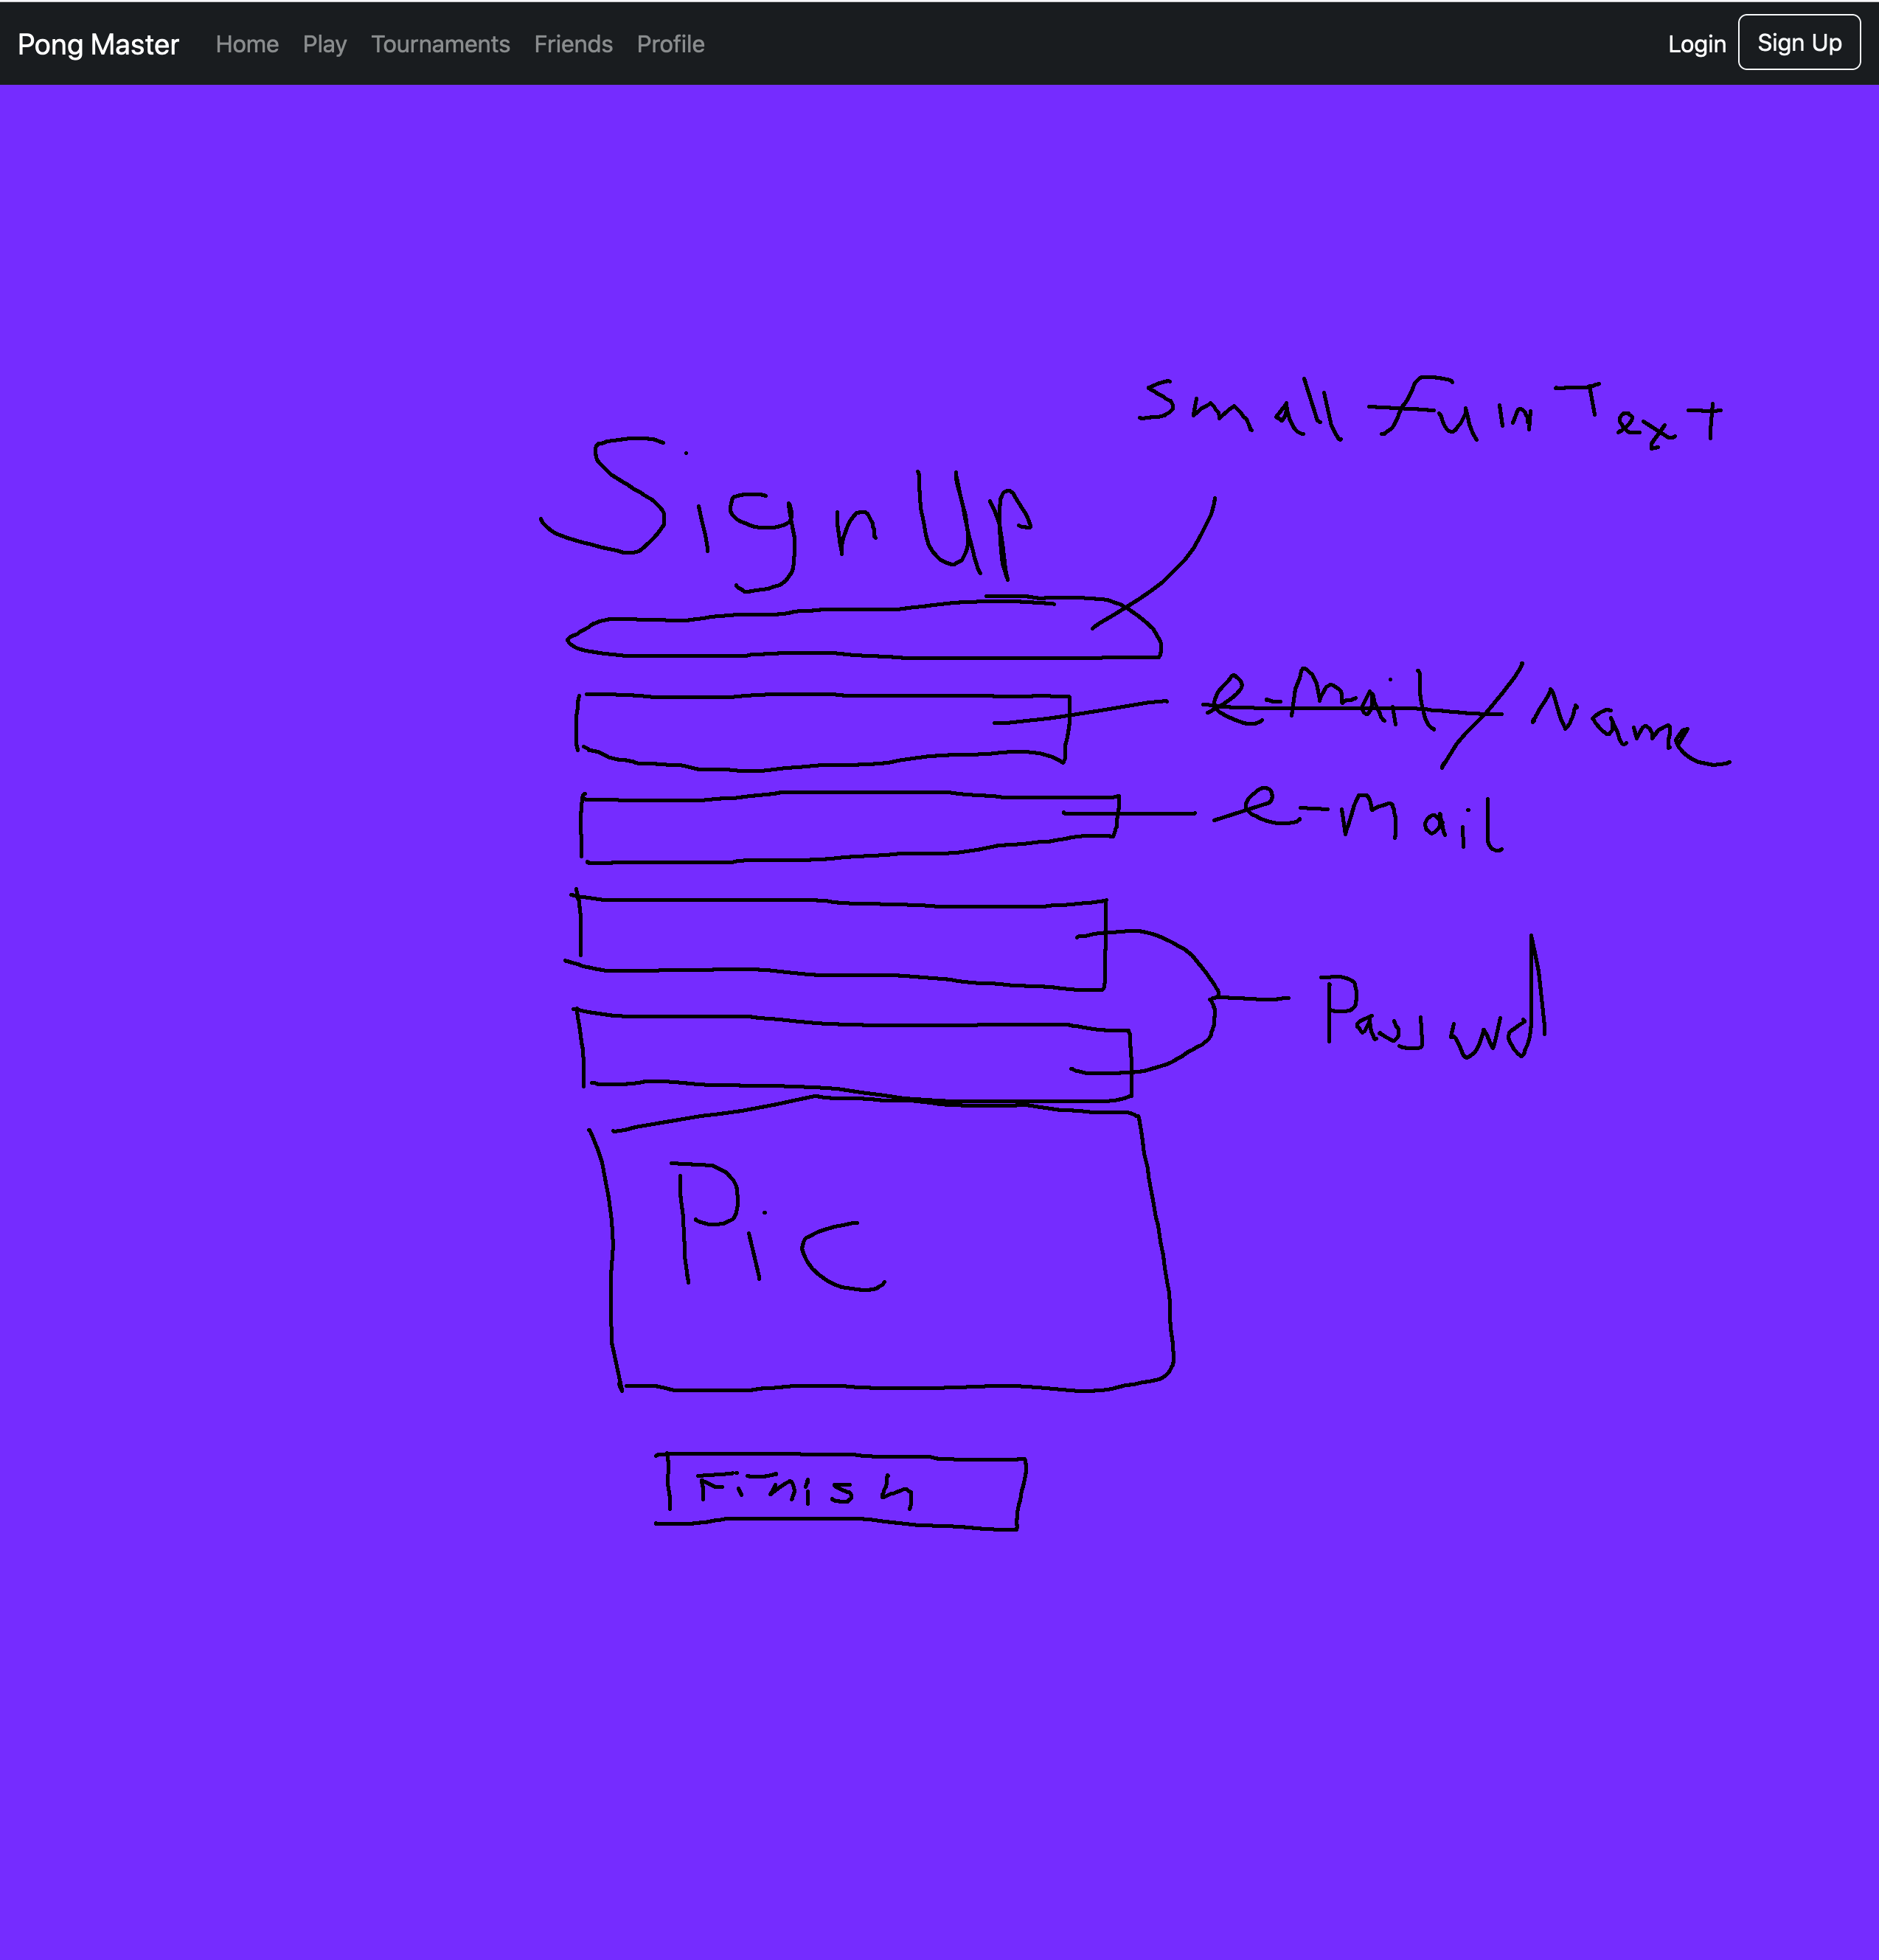 Pong Master Home Play Tournaments Friends Profile Login Sign Up
small fun Text
Sign Up
e-mail/Name
e-mail
Passwd
Pic
Finish